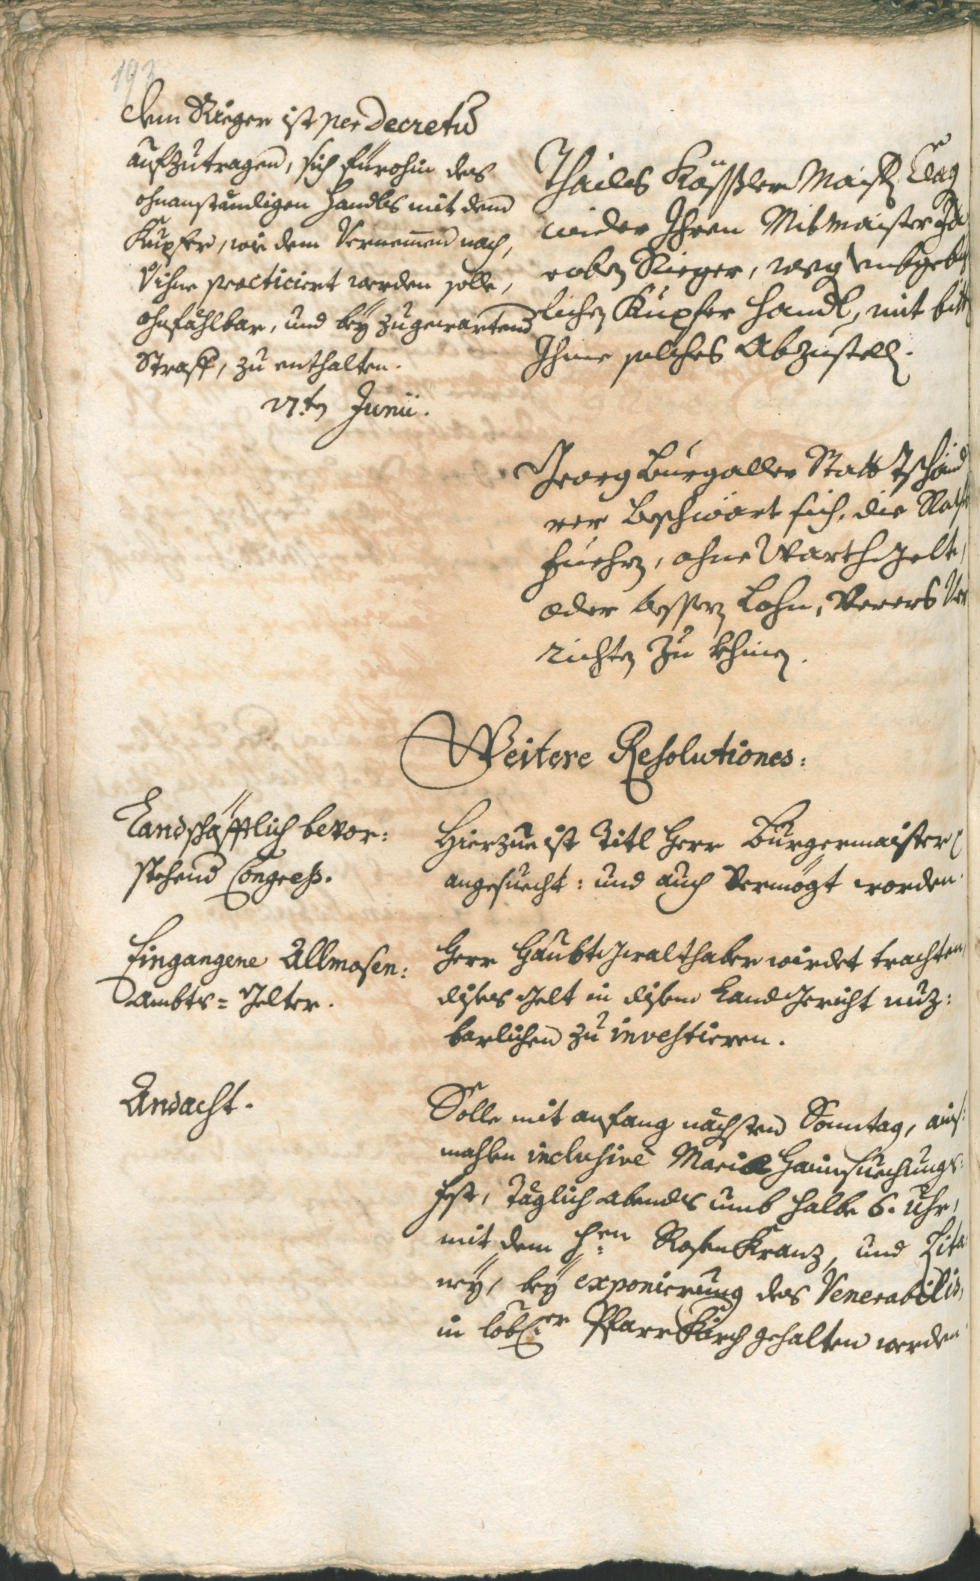 193
dem Rieger ist per Decretũ
aufzutragen, sich fürohin des
ohnanständigen Handls mit dem
Kupfer, wie dem Vernemmen nach,
Vihne practiciert werden solle,
ohnfählbar, und bey zugewartend
Straff, zu enthalten.
17.ten Junii.
Thailes Kössler Maist. Clag
wider Ihren Mitmaister Ja
cobẽ Rieger, weg
lichen Kupfer Handl, mit bitt
Ihme solches Abzustell.
Georg Burgaller Statt
rer beschwärt sich, die
fuehrẽ, ohne Warthgelt,
oder bessern Lohn, Verers Ver
richten zu khinen.
Weitere Resolutiones:
Landschäfftlich bevor:
stehend Congress.
Hierzue ist Titl Herr Burgermaister
angesuecht: und auch Vermögt worden.
Eingangene Allmosen:
Ambts= Gelter.
Herr Haubtgwalthaber wirdet trachten
dises Gelt in disem Landgericht nuz:
barlichen zu investieren.
Andacht.
Solle mit anfang nächsten Sonntag, ains:
mahlen inclusivè Mariæ Haimsuechungs:
fest, täglich abends umb halbe 6. Uhr,
mit dem H:en RosenKranz, und Lita
ney, bey exponierung des Venerabilis,
in lobl:er Pfarrkürch gehalten werden